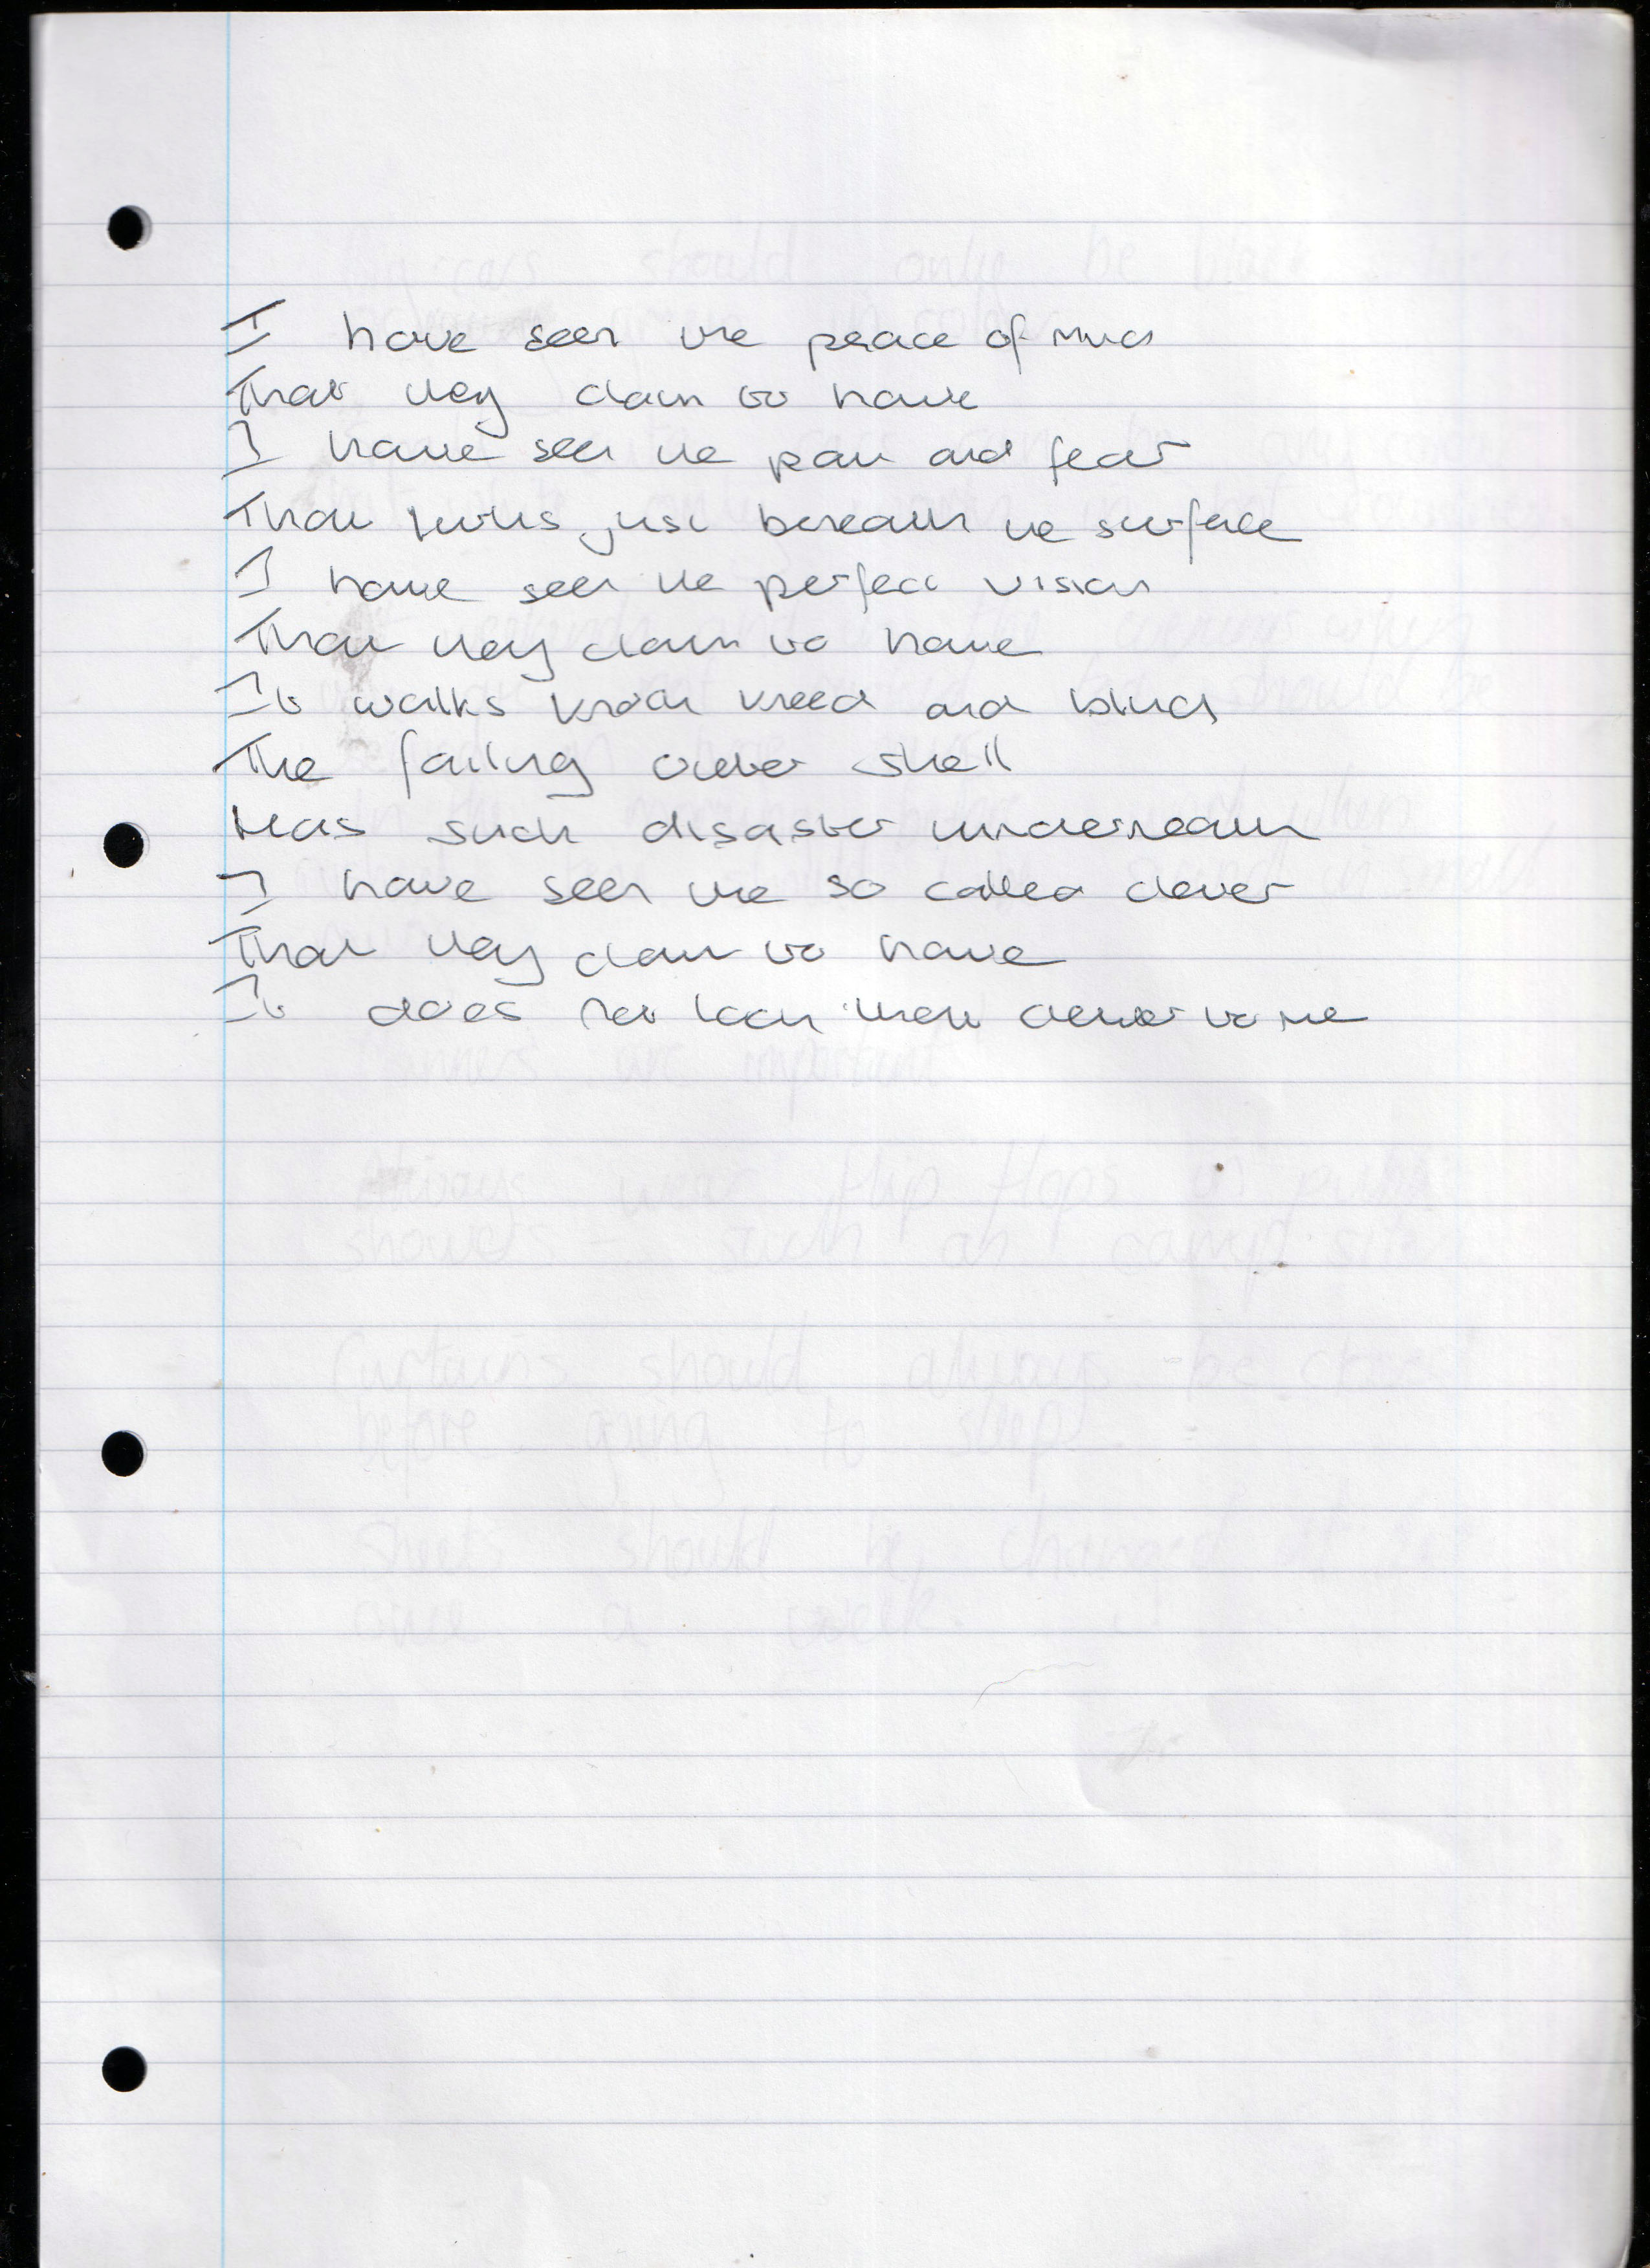 I have seen the peace of mind
That they claim to have
I have seen the pain and fear
That lurks just beneath the surface
I have seen the perfect vision
That they claim to have
It walks knock kneed and blind
The failing outer shell
Has such disaster underneath
I have seen the so called clever
That they claim to have
It does not look that clever to me